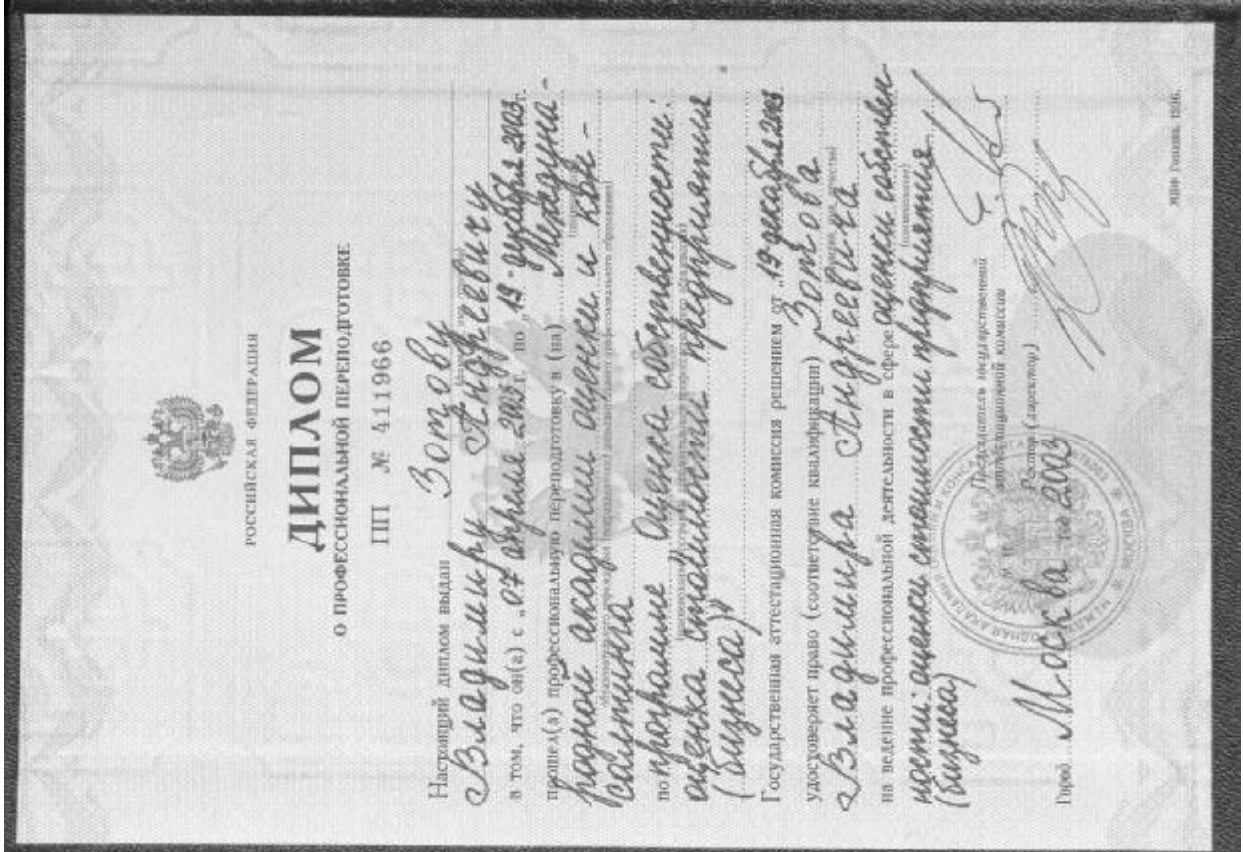 РОССИЙСКАЯ ФЕДЕРАЦИЯ
ДИПЛОМ
О ПРОФЕССИОНАЛЬНОЙ ПЕРЕПОДГОТОВКЕ
ПП № 411966
Настоящий диплом выдан Зотову
Владимиру Андреевичу
в том, что он(а) с „07 апреля 2003г. по „19" декабря 2003г.
прошел(а) профессиональную переподготовку в (на) Междуна-
родной академии оценки и кон-
салтинга
по программе „Оценка собственности:
оценка стоимости предприятия
(бизнеса)"
Государственная аттестационная комиссия решением от „19 декабря 2003
удостоверяет право (соответствие квалификации) Зотова
Владимира Андреевича
на ведение профессиональной деятельности в сфере оценки собствен-
ности: оценки стоимости предприятия
(бизнеса)
Председатель государственной
аттестационной комиссии
Ректор (директор)
Город Москва 2003